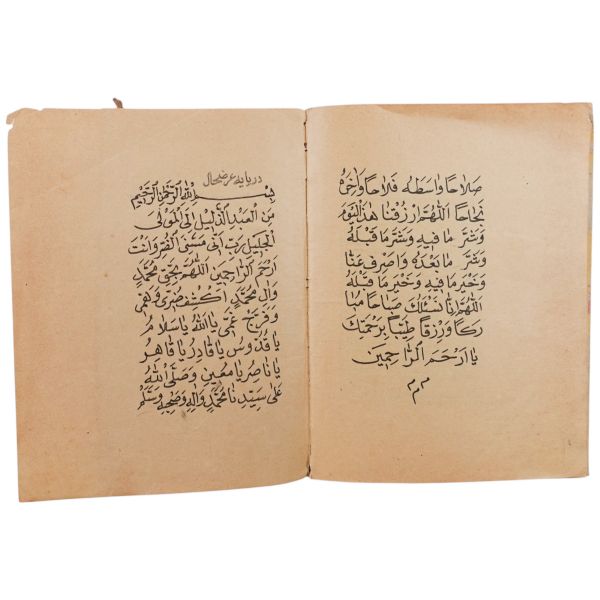 صلاحًا واسطه فلاحًا واخره
نجاحًا اللهم ارزقنا هذا اليوم
وشر ما فيه وشر ما قبله
وشر ما بعده واصرف عنا
وخير ما فيه وخير ما قبله
اللهم انا نسئلك صباحًا مبا
ركًا ورزقًا طيبًا برحمتك
يا ارحم الراحمين
م م م
دريايه عرضحال
بسم الله الرحمن الرحيم
من العبد الذليل الى المولى
الجليل رب انى مسنى الضر وانت
ارحم الراحمين اللهم بحق محمد
وال محمد اكشف ضرى وهمى
وفرج غمى يا الله يا سلام
يا قدوس يا قادر يا قاهر
يا ناصر يا معين وصلى الله
على سيدنا محمد واله وصحبه وسلم